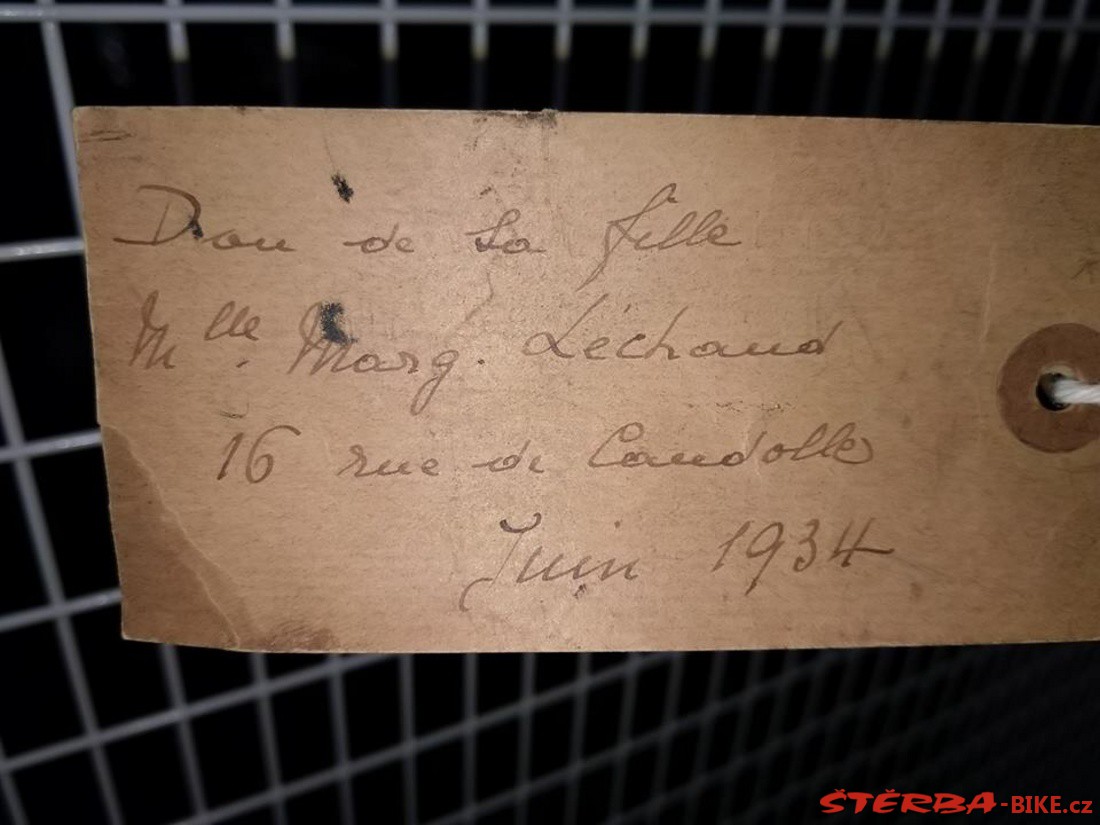 Don de sa fille
Mlle. Marg. Léchaud
16 rue de Candolle
Juin 1934
ŠTĚRBA-BIKE.cz